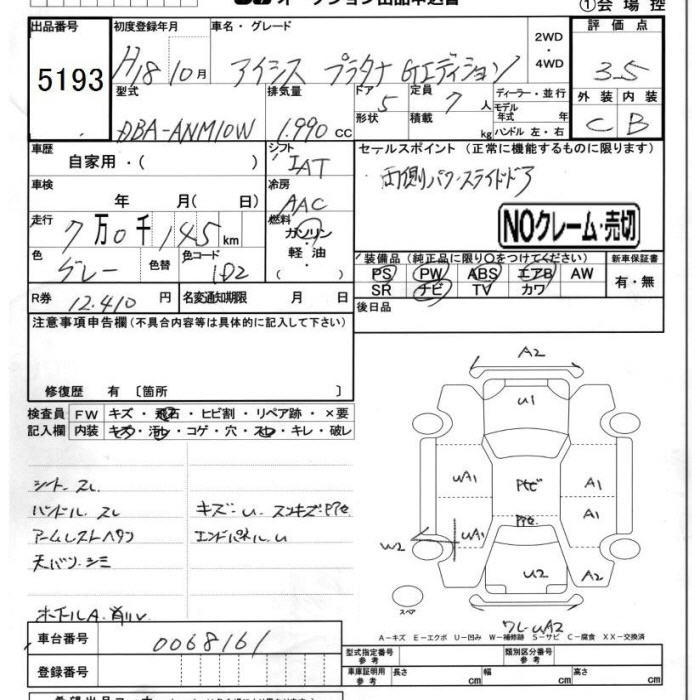 オークション出品申込書
①会場控
出品番号
5193
初度登録年月
H18 10月
車名・グレード
アイシス プラタナ Gエディション
2WD
・
4WD
評価点
3.5
型式
DBA-ANM10W
排気量
1.990 cc
ドア
5
形状
定員
7 人
積載
kg
ディーラー・並行
モデル
年式 年
ハンドル 左・右
外装 内装
C B
車歴
自家用・( )
シフト
IAT
セールスポイント (正常に機能するものに限ります)
両側パワースライドドア
車検
年 月( 日)
冷房
AAC
NOクレーム・売切
走行
7万0千145km
燃料
ガソリン
・
軽油
・
色
グレー
色替
色コード
1D2
装備品(純正品に限り○をつけてください)
PS PW ABS エアB AW
SR ナビ TV カワ
新車保証書
有・無
R券 12.410 円
名変通知期限 月 日
後日品
注意事項申告欄(不具合内容等は具体的に記入して下さい)
修復歴 有 〔箇所 〕
検査員
記入欄
FW キズ・飛石・ヒビ割・リペア跡・×要
内装 キズ・汚れ・コゲ・穴・スレ・キレ・破レ
シート スレ
ハンドル スレ
アームレストヘタン
天バリ シミ
キズ・U・スリキズ
エンドパネル U
A2
U1
UA1
A1
A1
UA1
W2
U2
A2
スペア
UA2
A-キズ E-エクボ U-凹み W-補修跡 S-サビ C-腐食 XX-交換済
車台番号
0068161
登録番号
型式指定番号
参考
類別区分番号
参考
車庫証明用
参考
長さ cm
幅 cm
高さ cm